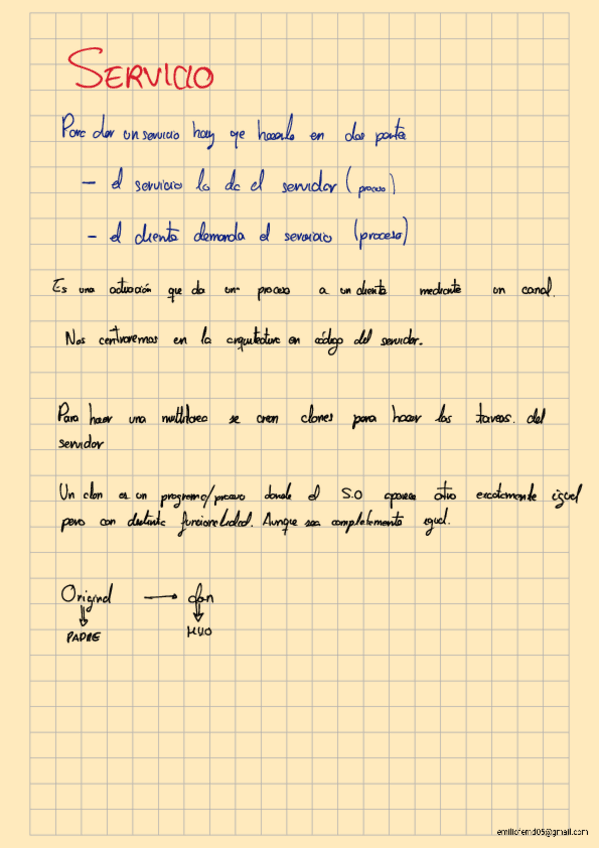 SERVICIO
Para dar un servicio hay que hacerlo en dos partes
– el servicio lo da el servidor (proceso)
– el cliente demanda el servicio (proceso)
Es una actuación que da un proceso a un cliente mediante un canal.
Nos centraremos en la arquitectura en código del servidor.
Para hacer una multitarea se crean clones para hacer las tareas. del
servidor
Un clon es un programa/proceso donde el S.O aparece otro exactamente igual
pero con distinta funcionalidad. Aunque sea completamente igual.
Original → clon
⇓ ⇓
PADRE HIJO
emiliofernd05@gmail.com